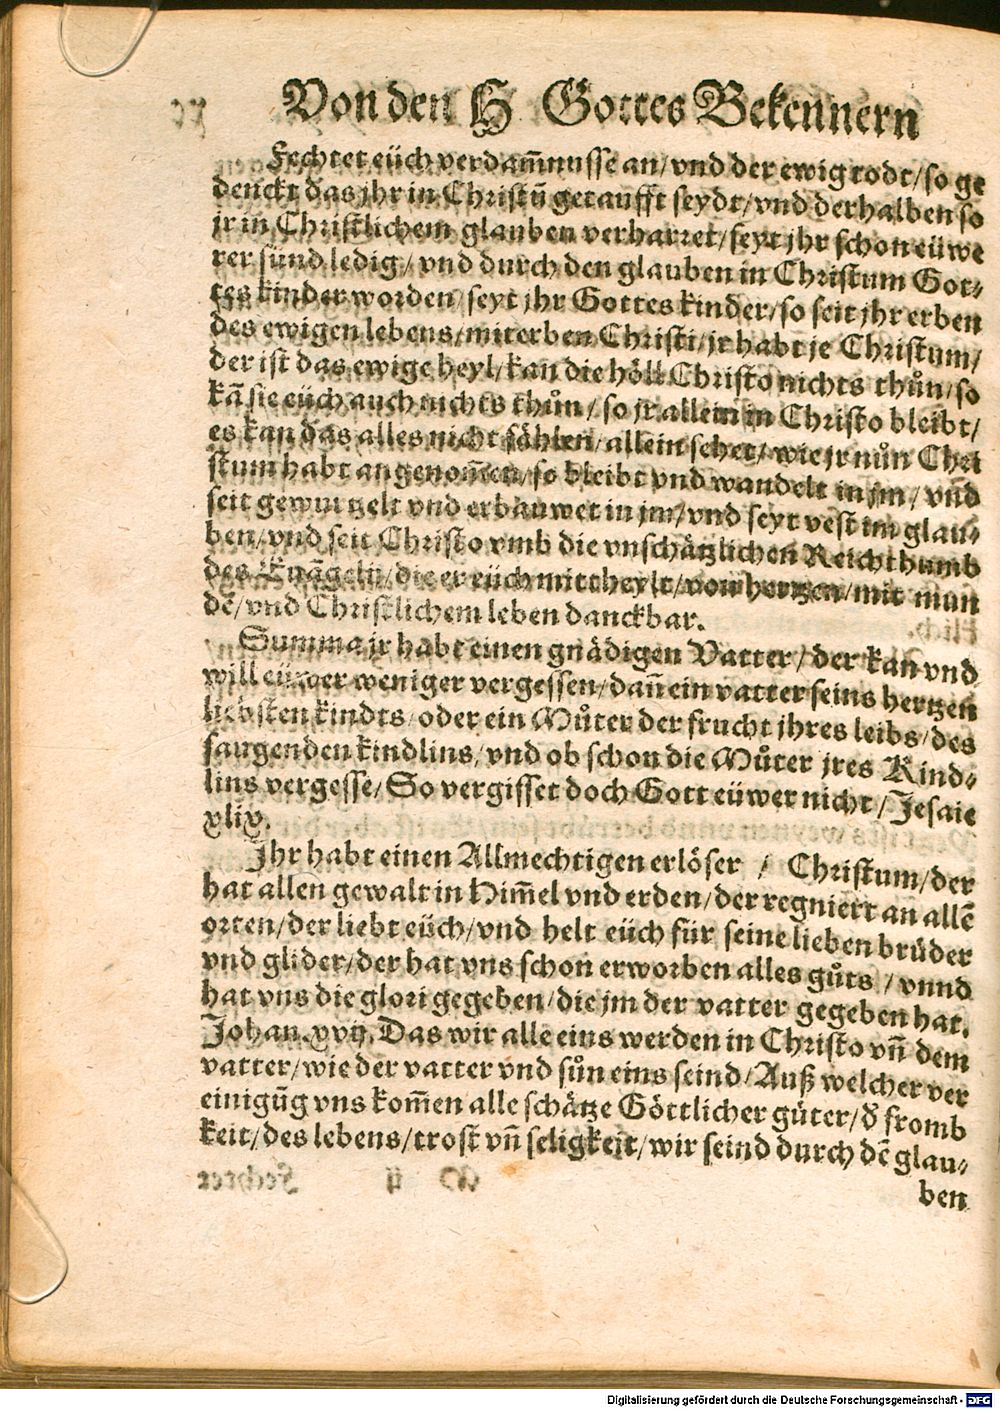 Von den H Gottes Bekennern
Fechtet eüch verdam̃nusse an/vnd der ewig todt/so ge
denckt das jhr in Christū getaufft seydt/vnd derhalben so
jr in Christlichem glauben verharret/seyt jhr schon eüwe
rer sünd ledig/vnd durch den glauben in Christum Got⸗
tes kinder worden/seyt jhr Gottes kinder/so seit jhr erben
des ewigen lebens/miterben Christi/jr habt je Christum/
der ist das ewige heyl/kan die höll Christo nichts thůn/so
kā sie eüch auch nichts thůn/so jr allein in Christo bleibt/
es kan das alles nicht fählen/allein sehet/wie jr nůn Chri
stum habt angenom̃en/so bleibt vnd wandelt in jm/vnd
seit gewurtzelt vnd erbauwet in jm/vnd seyt vest im glau⸗
ben/vnd seit Christo vmb die vnschätzlichen Reichthumb
des Euāgelij/die er eüch mittheylt/von hertzen/mit mun
dē/vnd Christlichem leben danckbar.
Summa jr habt einen gnädigen Vatter/der kan vnd
will eüwer weniger vergessen/dañ ein vatter seins hertzen
liebsten kindts/oder ein Můter der frucht jhres leibs/des
saugenden kindlins/vnd ob schon die Můter jres Kind⸗
lins vergesse/So vergisset doch Gott eüwer nicht/Jesaie
xlix.
Jhr habt einen Allmechtigen erlöser / Christum/der
hat allen gewalt in Him̃el vnd erden/der regniert an allē
orten/der liebt eüch/vnd helt eüch für seine lieben brüder
vnd glider/der hat vns schon erworben alles gůts/vnnd
hat vns die glori gegeben/die jm der vatter gegeben hat.
Johan.xvij. Das wir alle eins werden in Christo vñ dem
vatter/wie der vatter vnd sůn eins seind/Auß welcher ver
einigūg vns kom̃en alle schätze Göttlicher güter/d̃ fromb
keit/des lebens/trost vñ seligkeit/wir seind durch dē glau⸗
ben
Digitalisierung gefördert durch die Deutsche Forschungsgemeinschaft - DFG